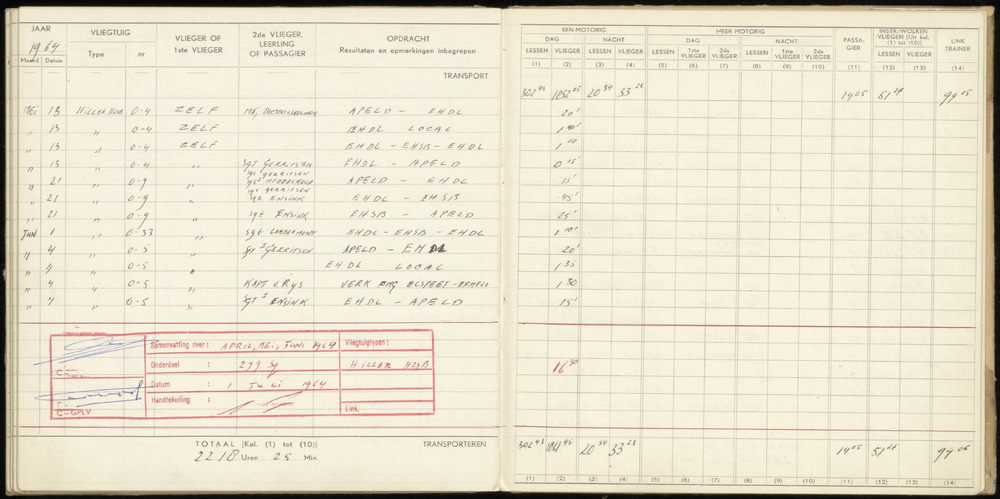 JAAR
1964
Maand Datum
VLIEGTUIG
Type nr
VLIEGER OF
1ste VLIEGER
2de VLIEGER,
LEERLING
OF PASSAGIER
OPDRACHT
Resultaten en opmerkingen inbegrepen
TRANSPORT
MEI 13 HILLER 0-4 ZELF APELD - EHDL
,, 13 ,, 0-4 ZELF EHDL LOCAL
,, 13 ,, 0-4 ZELF EHDL - EHSB - EHDL
,, 13 ,, 0-4 ,, Sgt GERRITSEN EHDL - APELD
,, 21 ,, 0-9 ,, APELD - EHDL
Sgt GERRITSEN
,, 21 ,, 0-9 ,, Sgt ENSINK EHDL - EHSB
,, 21 ,, 0-9 ,, Sgt ENSINK EHSB - APELD
JUN 1 ,, 6-33 ,, Sgt LAMBERMONT EHDL - EHSB - EHDL
,, 4 ,, 0-5 ,, GERRITSEN APELD - EHDL
,, 4 ,, 0-5 ,, EHDL LOCAL
,, 4 ,, 0-5 ,, KAPT V. RYS VERK ELSPEET - ERMELO
,, 4 ,, 6-5 ,, ENSINK EHDL - APELD
Samenvatting over: APRIL, MEI, JUNI 1964
Onderdeel : 299 Sq
Datum : 1 JULI 1964
Handtekening :
C-GPLV
Vliegtuigtypen:
HILLER H23B
Link.
TOTAAL [Kol. (1) tot (10)]
2218 Uren 25 Min.
TRANSPORTEREN
EEN-MOTORIG
DAG NACHT
LESSEN VLIEGER LESSEN VLIEGER
(1) (2) (3) (4)
MEER MOTORIG
DAG NACHT
LESSEN 1ste VLIEGER 2de VLIEGER LESSEN 1ste VLIEGER 2de VLIEGER
(5) (6) (7) (8) (9) (10)
PASSA-
GIER
(11)
INSTR./WOLKEN
VLIEGEN [Uit kol.
(1) tot (10)]
LESSEN VLIEGEN
(12) (13)
LINK
TRAINER
(14)
302 43 1852 05 20 34 33 23 14 05 51 27 99 05
20'
1 40'
1 10
0 15'
15'
45'
25'
1 10'
20'
1 35
1 30
15'
16 30
302 43 20 34 33 23 14 05 51 27 99 05
(1) (2) (3) (4) (5) (6) (7) (8) (9) (10) (11) (12) (13) (14)